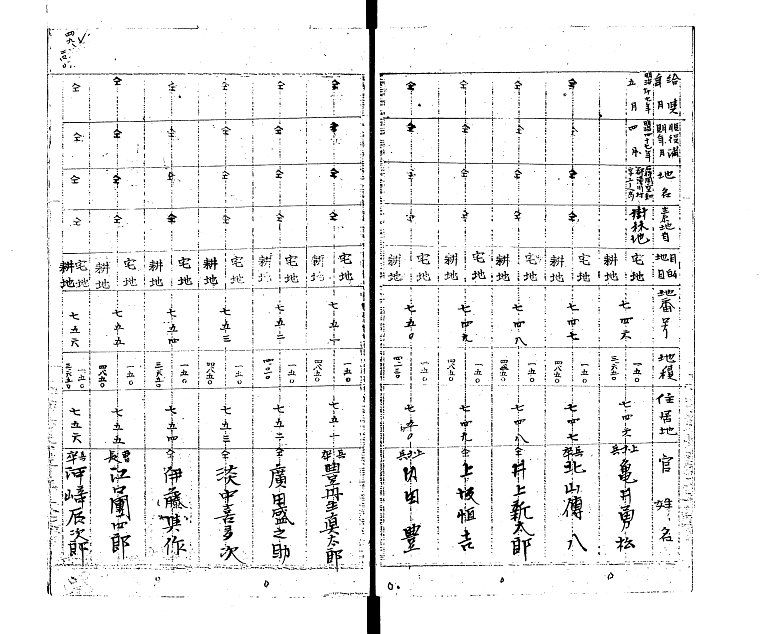 給與年月
服役満期年月
地名
素地目
目的地目
地番号
地積
住居地
官姓名
五月
四月
樹林地
宅地
耕地
七四六
一五〇
三六五〇
七四六
上等兵
亀井勇松
仝
仝
仝
仝
宅地
耕地
七四七
一五〇
四八五〇
七四七
卒長
北山傳八
仝
仝
仝
仝
宅地
耕地
七四八
一五〇
七四八
仝
井上新太郎
仝
仝
仝
仝
宅地
耕地
七四九
一五〇
四八五〇
七四九
仝
上坂恒吉
仝
仝
仝
仝
宅地
耕地
七五〇
一五〇
七五〇
上等兵
豊
仝
仝
仝
仝
宅地
耕地
七五一
一五〇
四八五〇
七五一
豊丹生真太郎
仝
仝
仝
仝
宅地
耕地
七五二
一五〇
七五二
仝
廣田盛之助
仝
仝
仝
仝
宅地
耕地
七五三
一五〇
四八五〇
七五三
仝
淡中喜多次
仝
仝
仝
仝
宅地
耕地
七五四
一五〇
三六五〇
七五四
仝
伊藤其作
仝
仝
仝
仝
宅地
耕地
七五五
一五〇
四八五〇
七五五
江口團四郎
仝
仝
仝
仝
宅地
耕地
七五六
一五〇
三六五〇
七五六
河崎辰次郎